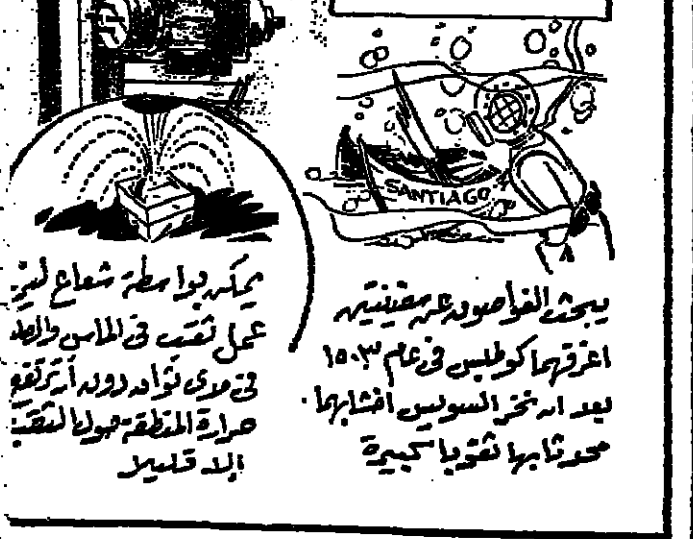 SANTIAGO
يبحث الغواصون عن سفينتين
اغرقهما كولمبس فى عام ١٥٠٣
بعد ان نخر السوس اخشابهما
محدثا بها ثقوبا كبيرة
يمكن بواسطة شعاع ليزر
عمل ثقب فى الماس والصلب
فى مدى ثوان دون أن ترتفع
حرارة المنطقة حول الثقب
إلا قليلا